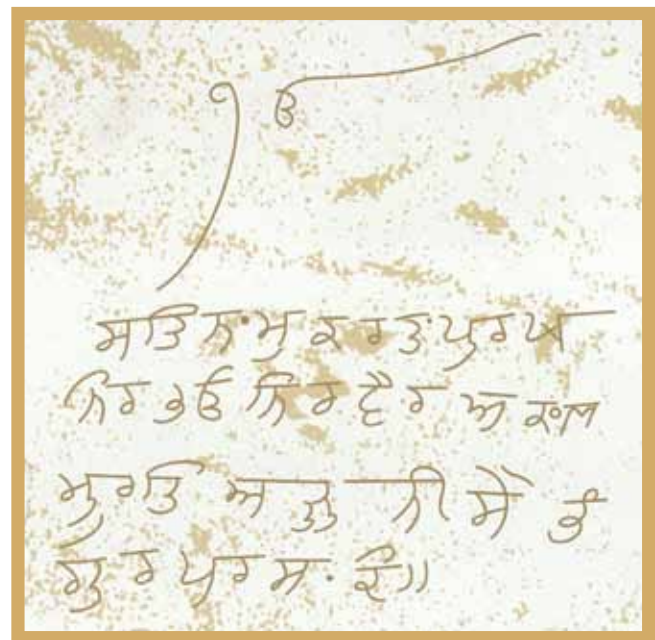 ੴ
ਸਤਿ ਨਾਮੁ ਕਰਤਾ ਪੁਰਖੁ
ਨਿਰਭਉ ਨਿਰਵੈਰ ਅਕਾਲ
ਮੂਰਤਿ ਅਜੂਨੀ ਸੈਭੰ
ਗੁਰ ਪ੍ਰਸਾਦਿ॥